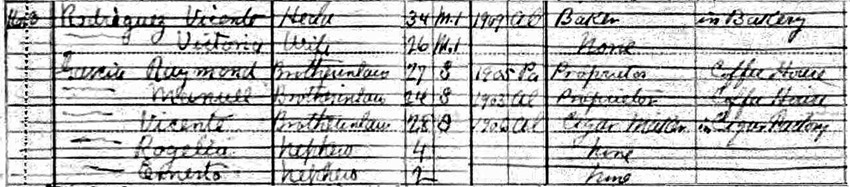 Rodriguez Vicente Head 34 M 1 1909 Al Baker in Bakery
Victoria Wife 26 M 1 None
Raymond Brotherinlaw 27 S 1905 Pa Proprietor Coffee House
Manuel Brotherinlaw 24 S 1903 Al Proprietor Coffee House
Vicente Brotherinlaw 28 S Al Cigar Maker in Cigar Factory
Rogelio Nephew 4 None
Ernesto Nephew 2 None